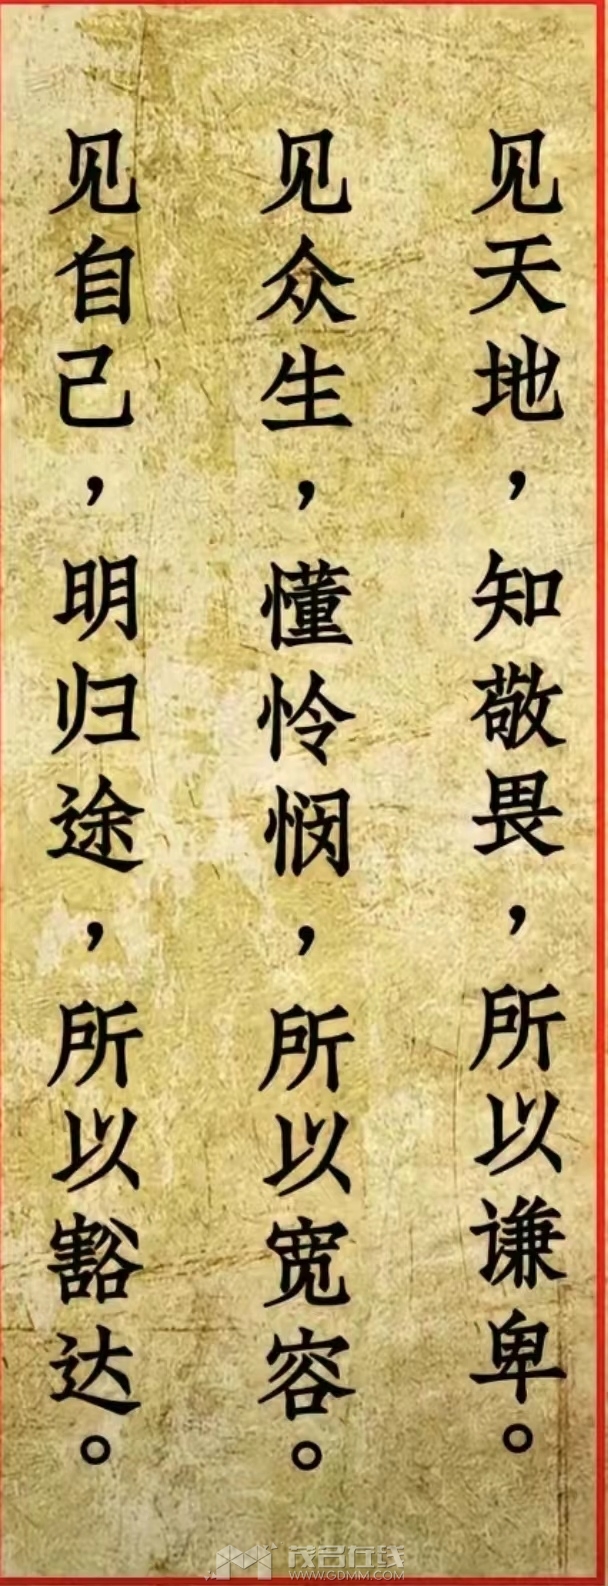 见天地，知敬畏，所以谦卑。
见众生，懂怜悯，所以宽容。
见自己，明归途，所以豁达。
茂名在线
WWW.GDMM.COM